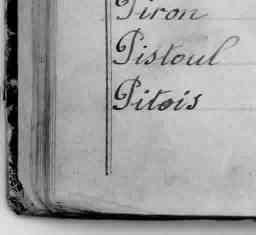 Piron
Pistoul
Pitois